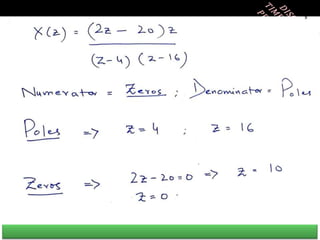 X(z) = (2z - 20) z
(z-4) (z-16)
Numerator = Zeros ; Denominator = Poles
Poles => z = 4 ; z = 16
Zeros => 2z-20=0 => z = 10
z = 0